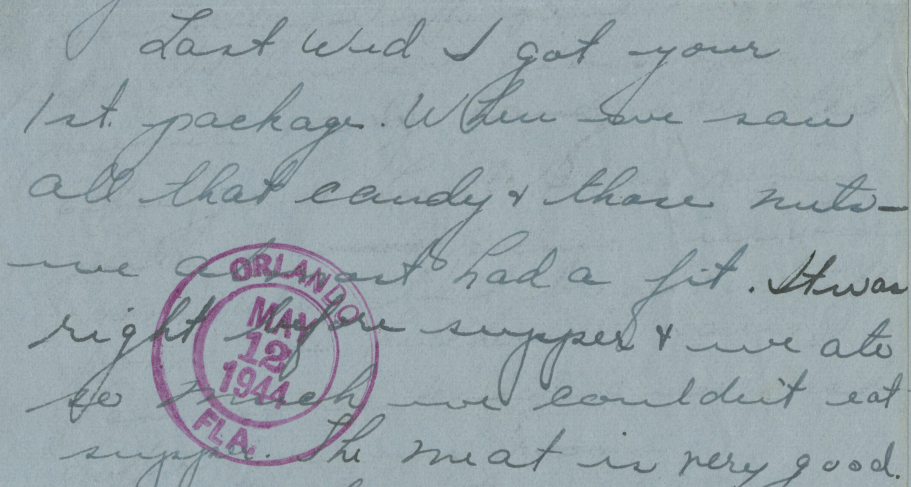 Last Wed I got your
1st. package. When we saw
all that candy & those nuts—
we almost had a fit. It was
right before supper & we ate
so much we couldn't eat
supper. The meat is very good.
ORLANDO
MAY
12
1944
FLA.